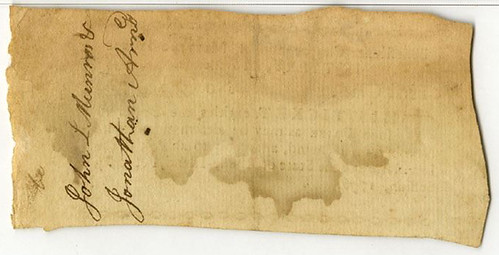 John L Munro &
Jonathan Arno